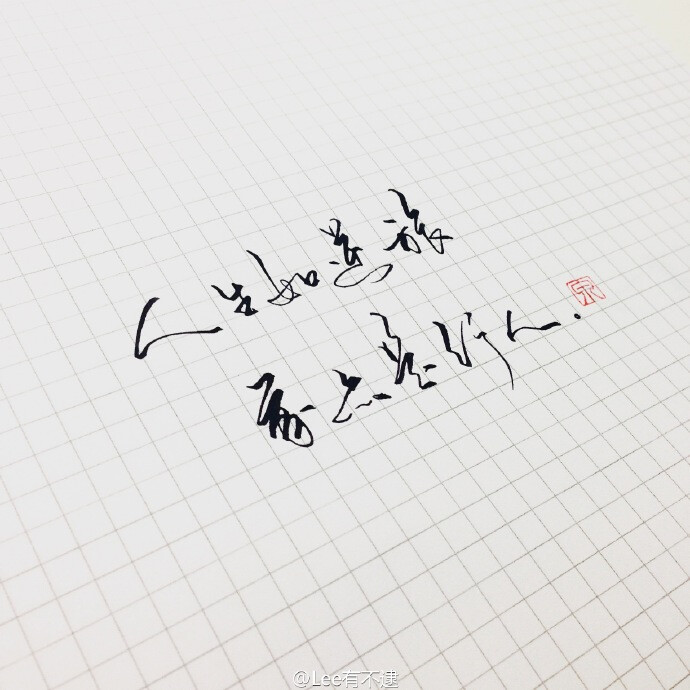 人生如逆旅
我亦是行人.
@Lee有不逮